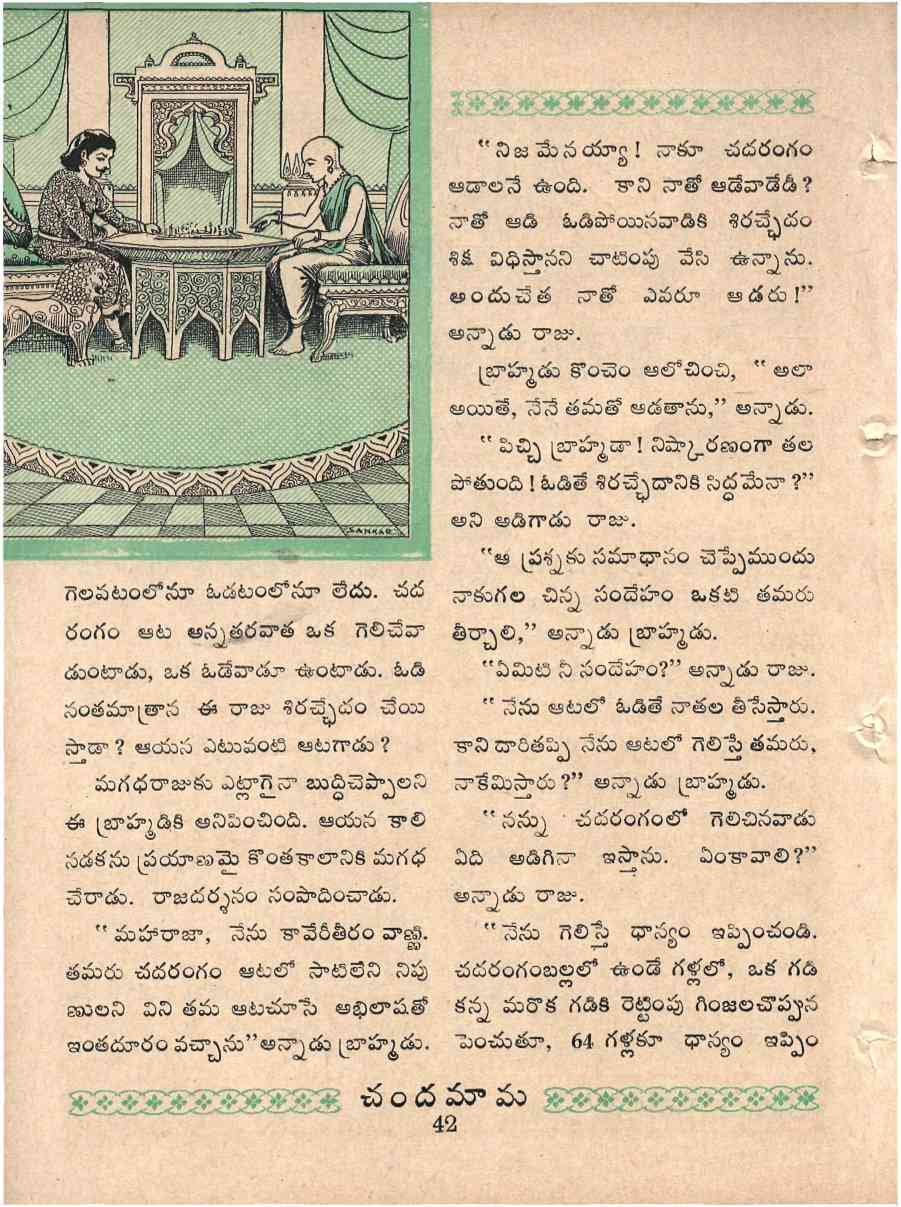 SANKAR
గెలవటంలోనూ ఓడటంలోనూ లేదు. చద
రంగం ఆట అన్నతరవాత ఒక గెలిచేవా
డుంటాడు, ఒక ఓడేవాడూ ఉంటాడు. ఓడి
నంతమాత్రాన ఈ రాజు శిరచ్ఛేదం చేయి
స్తాడా ? ఆయన ఎటువంటి ఆటగాడు ?
మగధరాజుకు ఎట్లాగైనా బుద్ధిచెప్పాలని
ఈ బ్రాహ్మడికి అనిపించింది. ఆయన కాలి
నడకను ప్రయాణమై కొంతకాలానికి మగధ
చేరాడు. రాజదర్శనం సంపాదించాడు.
“ మహారాజా, నేను కావేరీతీరం వాణ్ణి.
తమరు చదరంగం ఆటలో సాటిలేని నిపు
ణులని విని తమ ఆటచూసే అభిలాషతో
ఇంతదూరం వచ్చాను” అన్నాడు బ్రాహ్మడు.
“ నిజమేనయ్యా ! నాకూ చదరంగం
ఆడాలనే ఉంది. కాని నాతో ఆడేవాడేడీ ?
నాతో ఆడి ఓడిపోయినవాడికి శిరచ్ఛేదం
శిక్ష విధిస్తానని చాటింపు వేసి ఉన్నాను.
అందుచేత నాతో ఎవరూ ఆడరు !”
అన్నాడు రాజు.
బ్రాహ్మడు కొంచెం ఆలోచించి, “ అలా
అయితే, నేనే తమతో ఆడతాను,” అన్నాడు.
“ పిచ్చి బ్రాహ్మడా ! నిష్కారణంగా తల
పోతుంది ! ఓడితే శిరచ్ఛేదానికి సిద్ధమేనా ?”
అని అడిగాడు రాజు.
“ఆ ప్రశ్నకు సమాధానం చెప్పేముందు
నాకుగల చిన్న సందేహం ఒకటి తమరు
తీర్చాలి,” అన్నాడు బ్రాహ్మడు.
“ఏమిటి నీ సందేహం?” అన్నాడు రాజు.
“ నేను ఆటలో ఓడితే నాతల తీసేస్తారు.
కాని దారితప్పి నేను ఆటలో గెలిస్తే తమరు,
నాకేమిస్తారు ?” అన్నాడు బ్రాహ్మడు.
“ నన్ను చదరంగంలో గెలిచినవాడు
ఏది అడిగినా ఇస్తాను. ఏంకావాలి ?”
అన్నాడు రాజు.
“ నేను గెలిస్తే ధాన్యం ఇప్పించండి.
చదరంగంబల్లలో ఉండే గళ్లలో, ఒక గడి
కన్న మరొక గడికి రెట్టింపు గింజలచొప్పున
పెంచుతూ, 64 గళ్లకూ ధాన్యం ఇప్పిం
చందమామ
42